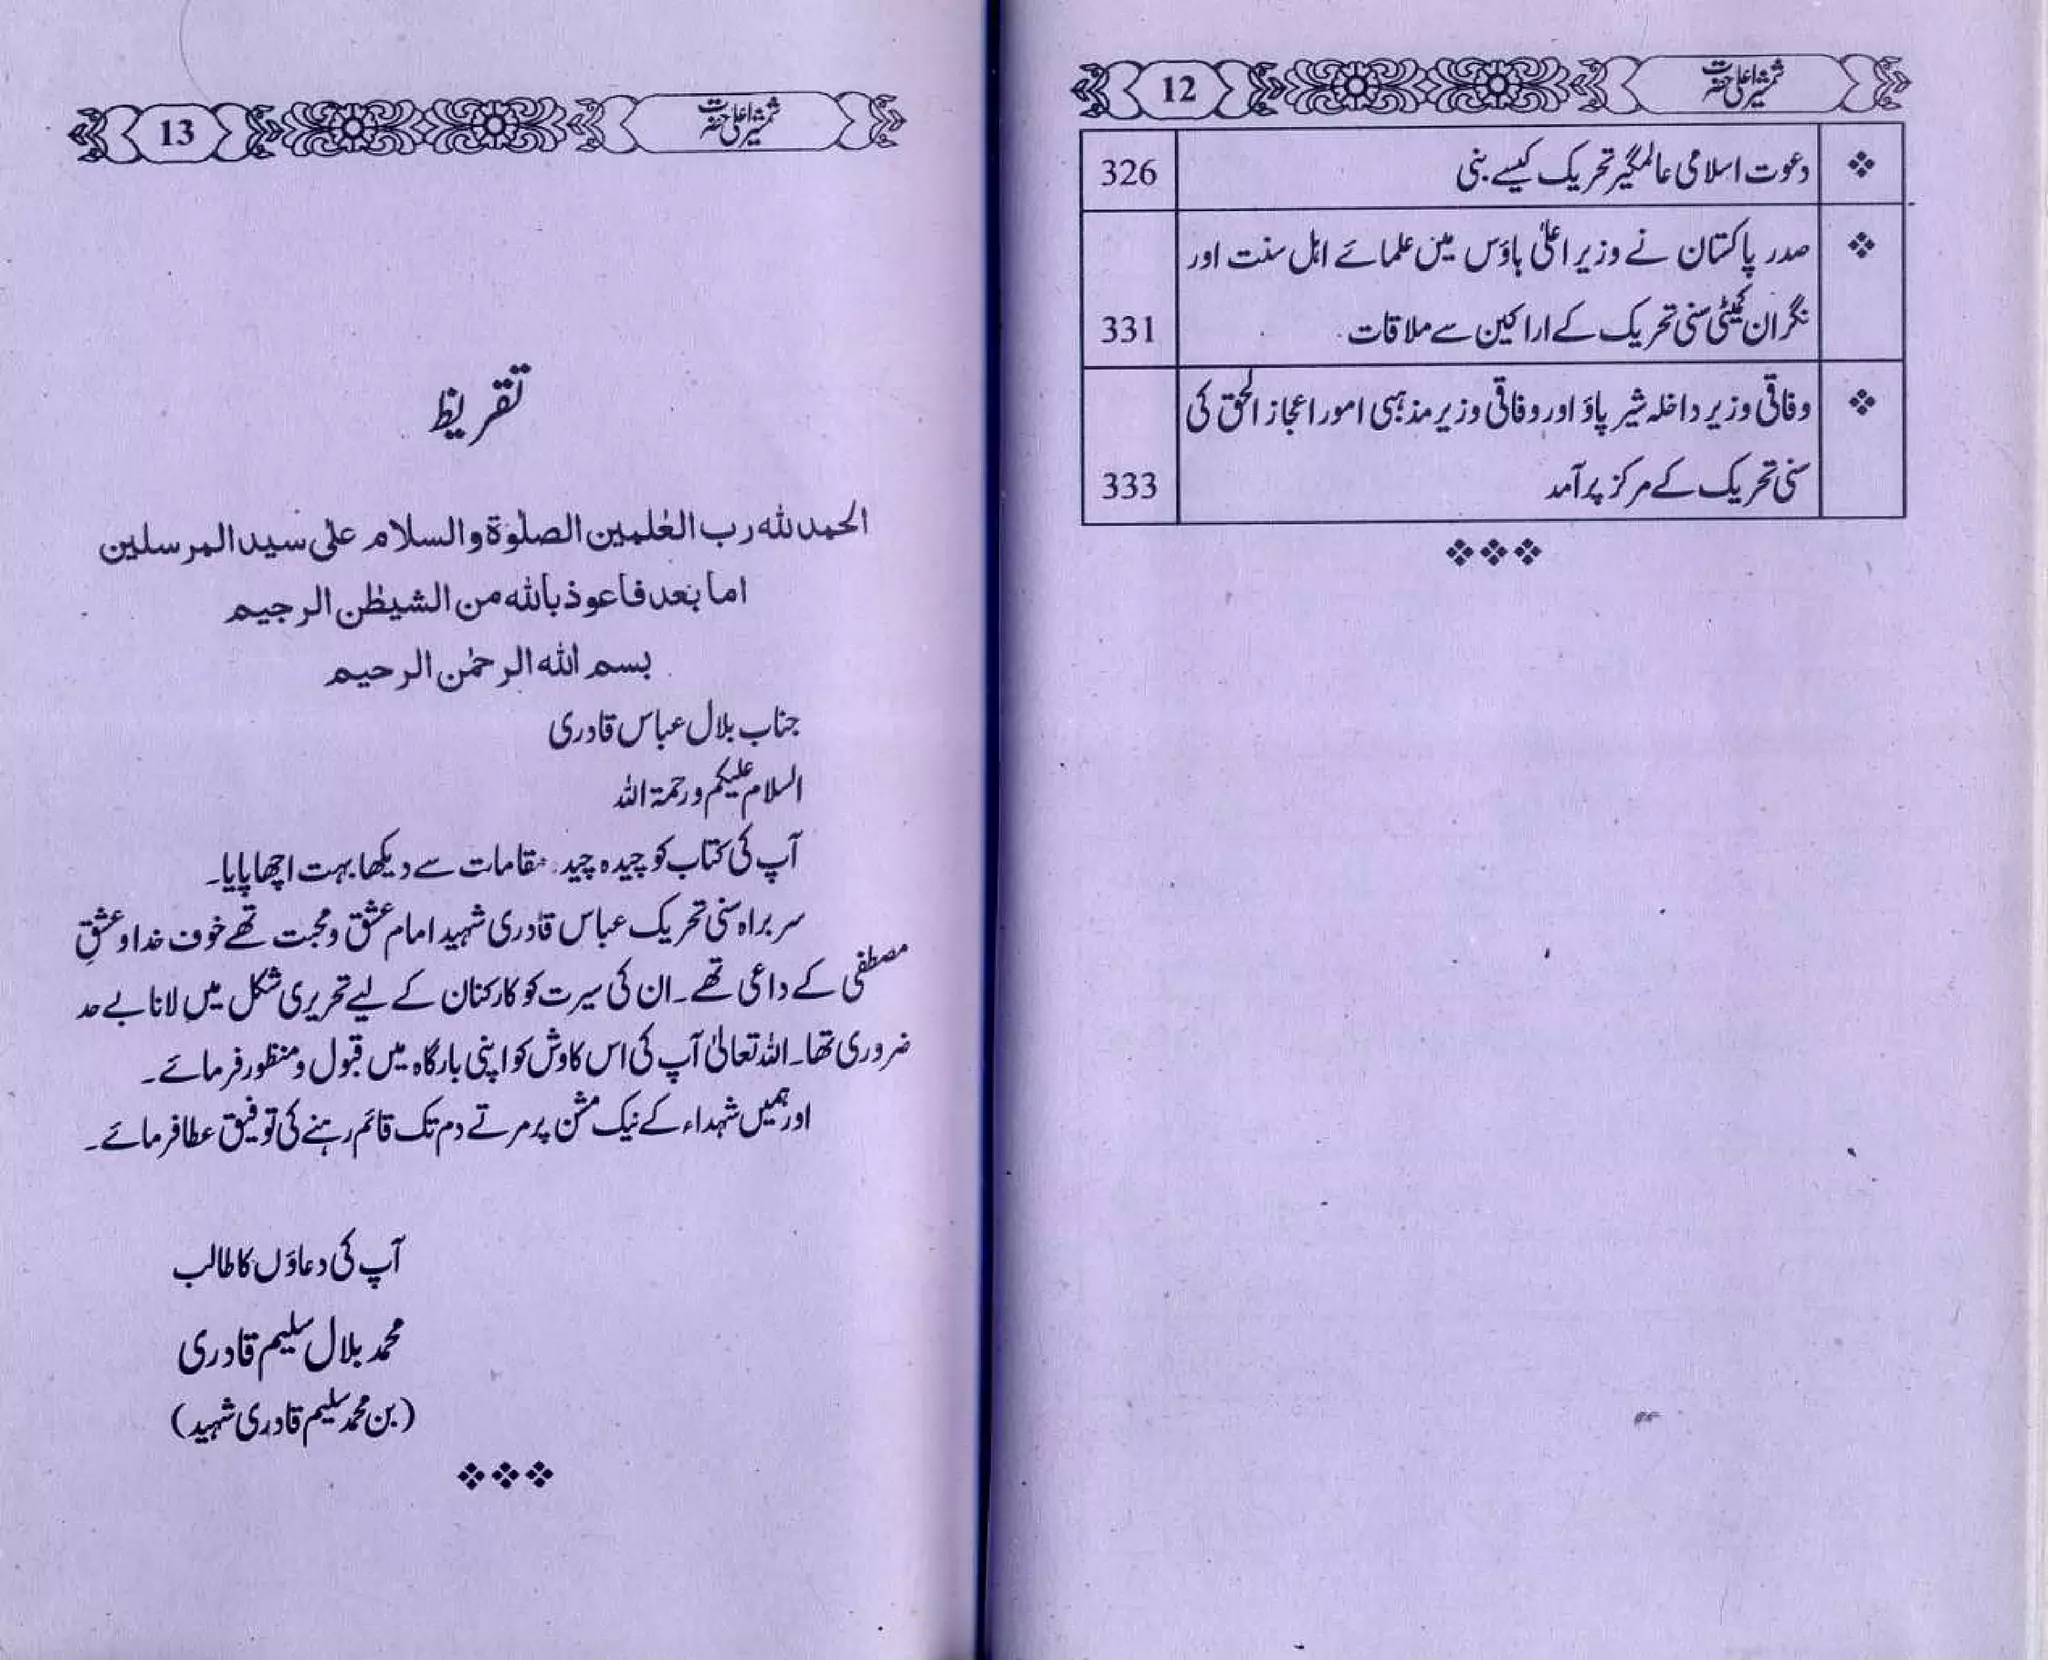 شمشیر اعلیٰ حضرت
12
❖ دعوت اسلامی عالمگیر تحریک کیسے بنی 326
❖ صدر پاکستان نے وزیر اعلیٰ ہاؤس میں علمائے اہل سنت اور
نگران کمیٹی سنی تحریک کے اراکین سے ملاقات 331
❖ وفاقی وزیر داخلہ شیر پاؤ اور وفاقی وزیر مذہبی امور اعجاز الحق کی
سنی تحریک کے مرکز پر آمد 333
❖❖❖
شمشیر اعلیٰ حضرت
13
تقریظ
الحمد للہ رب العٰلمین الصلوٰۃ والسلام علیٰ سید المرسلین
اما بعد فاعوذ باللہ من الشیطٰن الرجیم
بسم اللہ الرحمٰن الرحیم
جناب بلال عباس قادری
السلام علیکم ورحمۃ اللہ
آپ کی کتاب کو چیدہ چیدہ مقامات سے دیکھا بہت اچھا پایا۔
سربراہ سنی تحریک عباس قادری شہید امام عشق و محبت تھے خوف خدا و عشقِ
مصطفی کے داعی تھے۔ ان کی سیرت کو کارکنان کے لیے تحریری شکل میں لانا بے حد
ضروری تھا۔ اللہ تعالیٰ آپ کی اس کاوش کو اپنی بارگاہ میں قبول و منظور فرمائے۔
اور ہمیں شہداء کے نیک مشن پر مرتے دم تک قائم رہنے کی توفیق عطا فرمائے۔
آپ کی دعاؤں کا طالب
محمد بلال سلیم قادری
(بن محمد سلیم قادری شہید)
❖❖❖